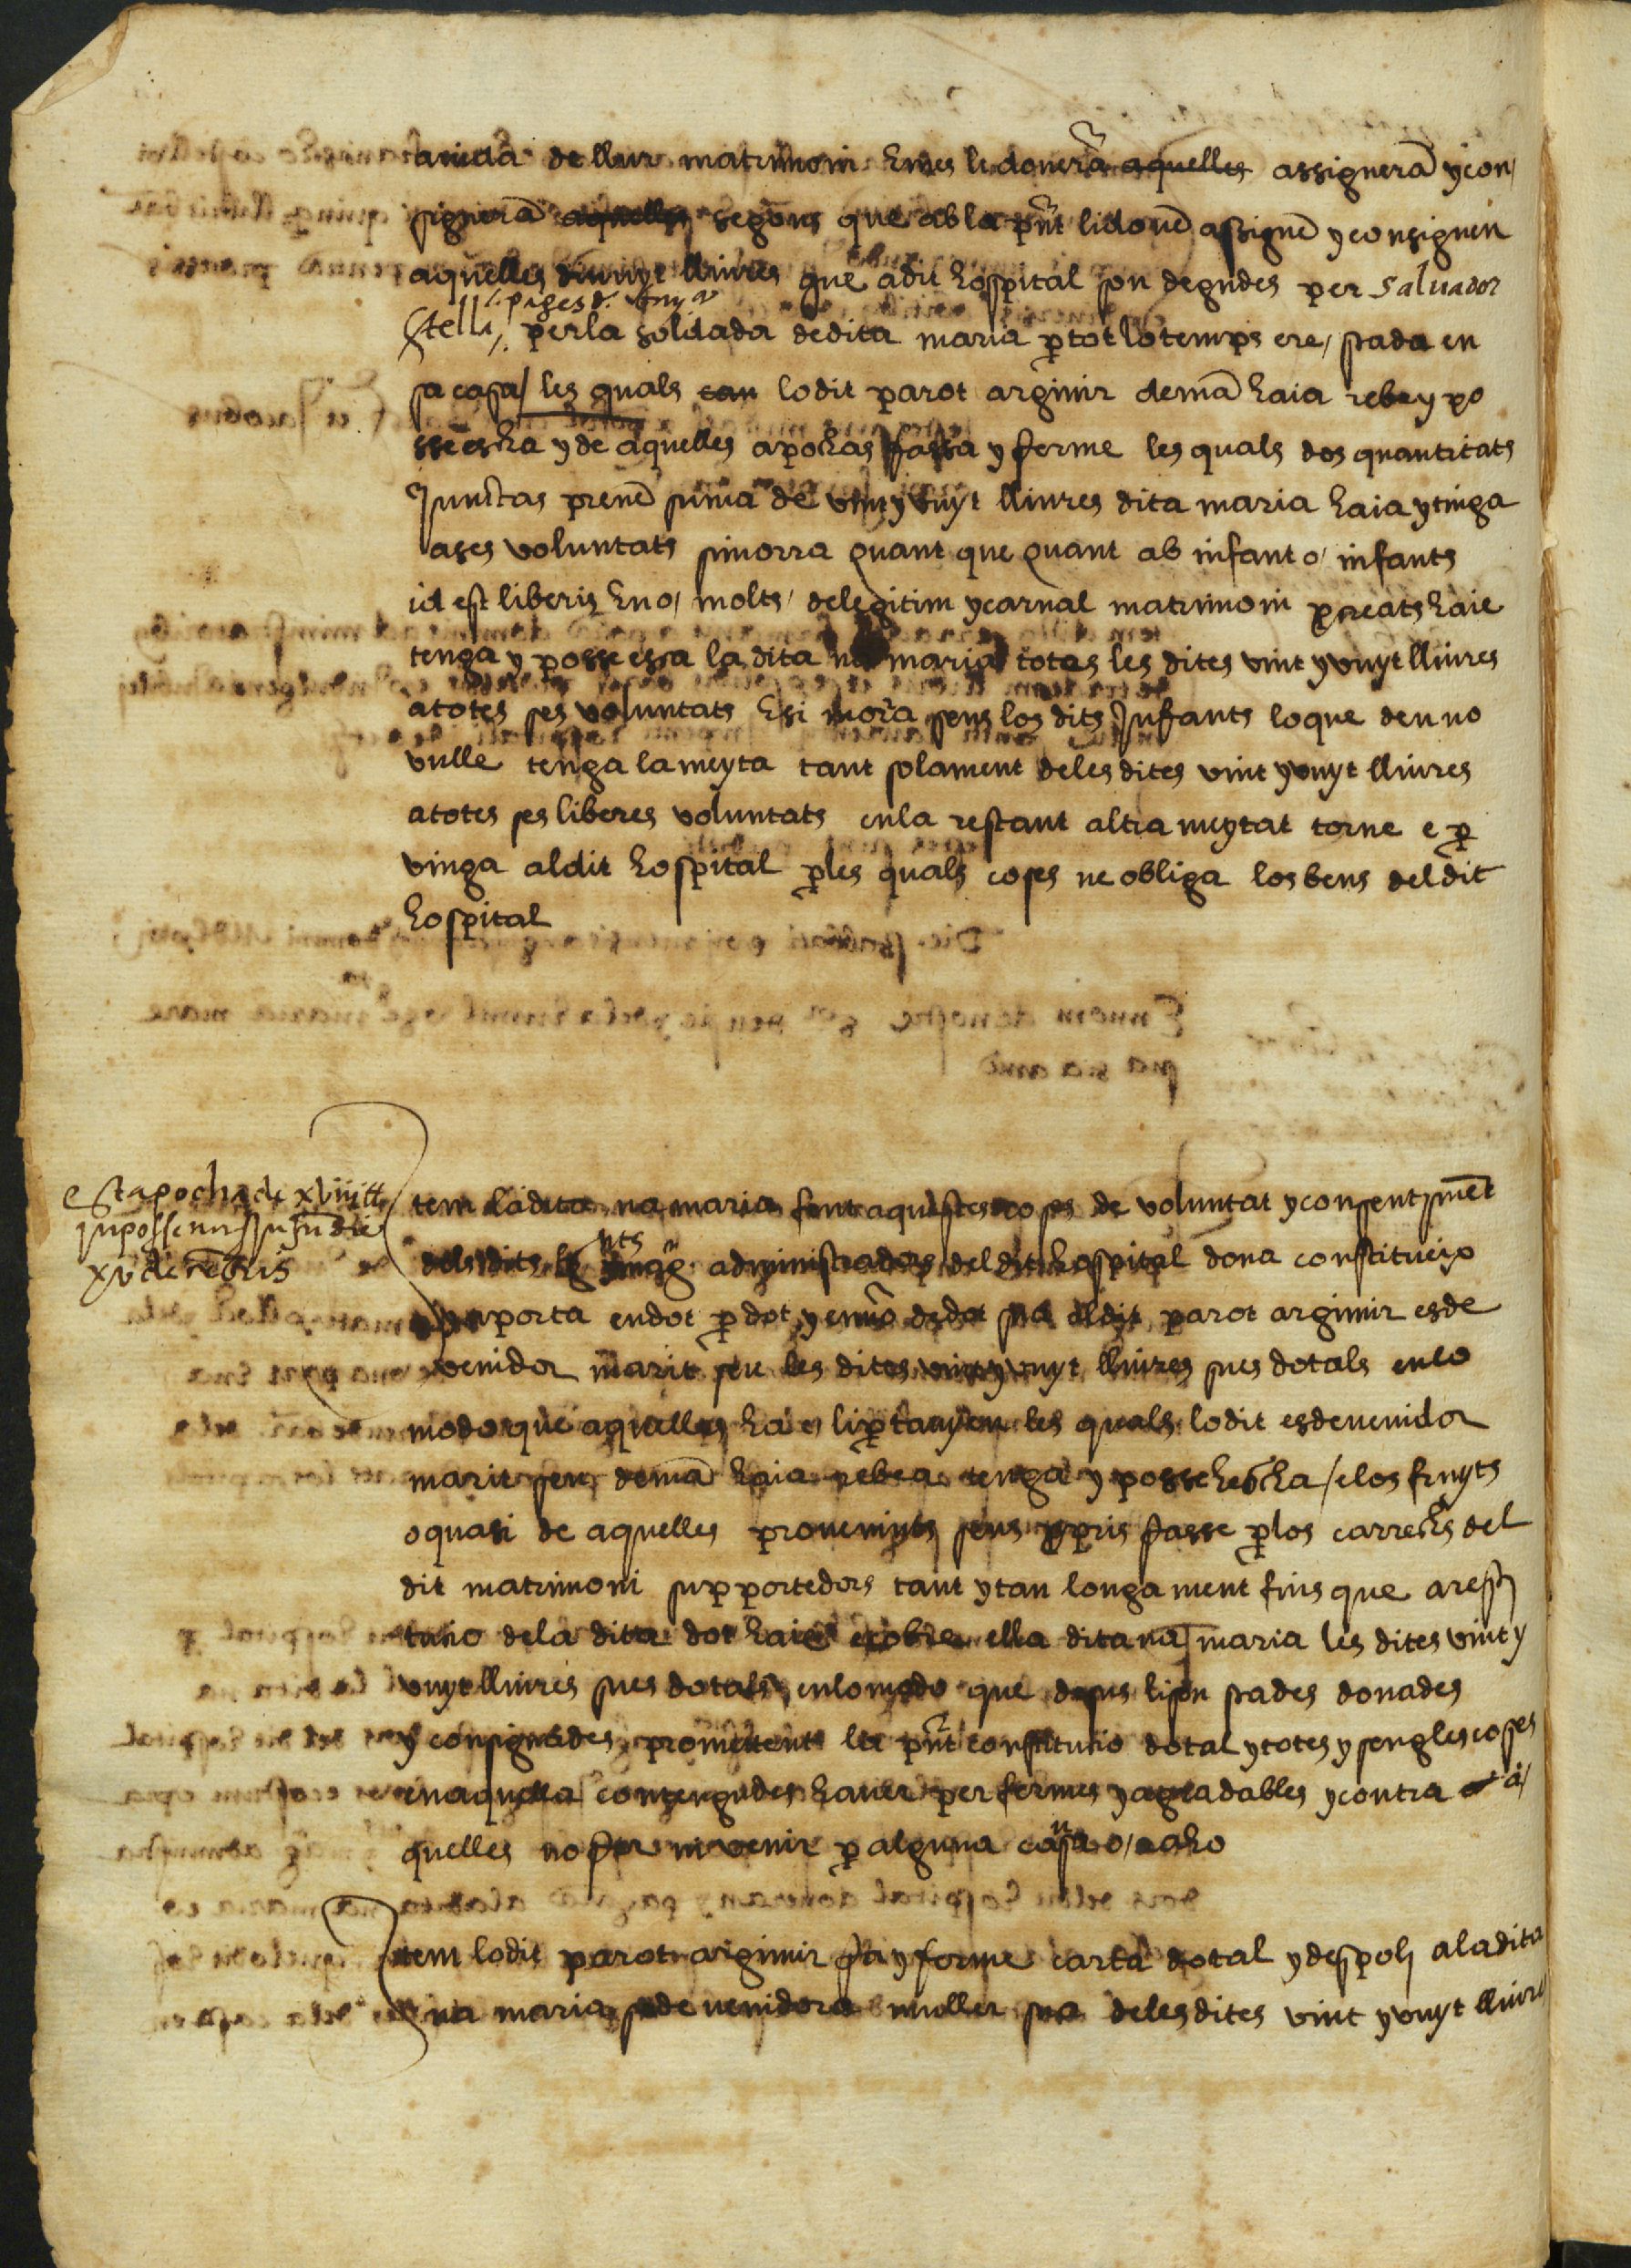 de llur matrimoni E mes li donerã aquelles assignerã y con/
signerã aquelles segons que ab la pñt li donẽ assignẽ y consignen
aquelles divuyt lliures que a dit hospital son degudes per Salvador
pages d.
Stella/. per la soldada de dita maria p tot lo temps ere/ stada en
sa casa/ les quals can lodit parot argimir demã haia reba y po
sseescha y de aquelles apochas fassa y ferme les quals dos quantitats
Junctas prenẽ suma de vint y vuyt lliures dita maria haia y tinga
a ses voluntats si morra quant que quant ab infant o/ infants
id est liberis hu o/ molts/ de legitim y carnal matrimoni pcreats haie
tenga y possescha la dita na maria totes les dites vint y vuyt lliures
a totes ses voluntats E si morã sens los dits Infants lo que deu no
vulle tenga la meyta tant solament de les dites vint y vuyt lliures
a totes ses liberes voluntats en la restant altra meytat torne e p
vinga al dit hospital p les quals coses ne obliga los bens del dit
hospital
Est apocha de xviii ll
in posse mei
xv decẽbris
tem la dita na maria fent aquestes coses de voluntat y consentimẽt
dels dits administradors del dit hospital dona constitueix
y aporta en dot p dot y en nõ de dot sua al dit parot argimir esde
venidor marit seu les dites vint y vuyt lliures sues dotals en lo
modo que aquelles ha e li ptanyen les quals lo dit esdevenidor
marit seu demã haia reba tenga y possehescha/ e los fruyts
o quasi de aquelles provenints seus ppris fasse p los carrechs del
dit matrimoni supportedors tant y tan longament fins que a resti
tutio de la dita dot haie ella dita na maria les dites vint y
vuyt lliures sues dotals en lo modo que desus li son stades donades
y consignades promettent la pñt constitutio dotal y totes y sengles coses
en aquella contengudes haver per fermes y agradables y contra a/
quelles no fer ni venir p alguna causa o/ raho
tem lodit parot argimir fa y ferme carta dotal y despoli a la dita
na maria sdevenidora muller sua de les dites vint y vuyt lliures